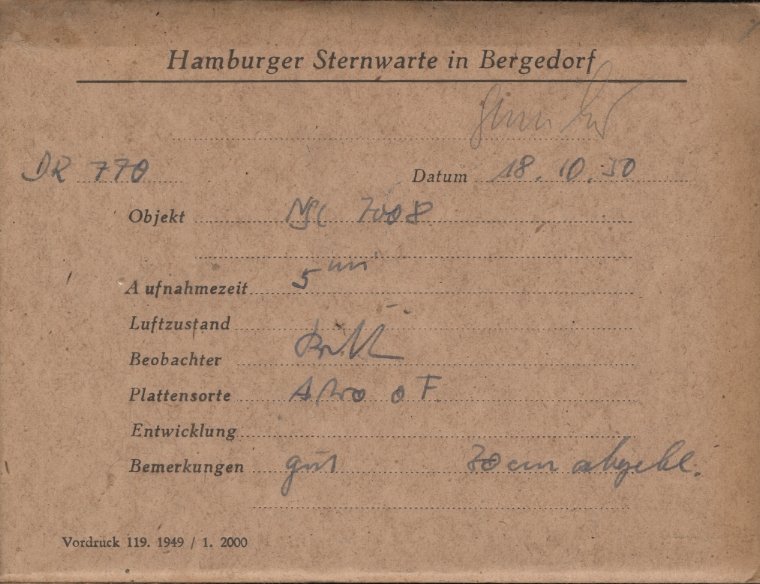 Hamburger Sternwarte in Bergedorf
DR 770 Datum 18.10.50
Objekt NGC 7008
Aufnahmezeit 5 min
Luftzustand -
Beobachter
Plattensorte Astro o F
Entwicklung
Bemerkungen gut 70 cm abgebl.
Vordruck 119. 1949 / 1. 2000